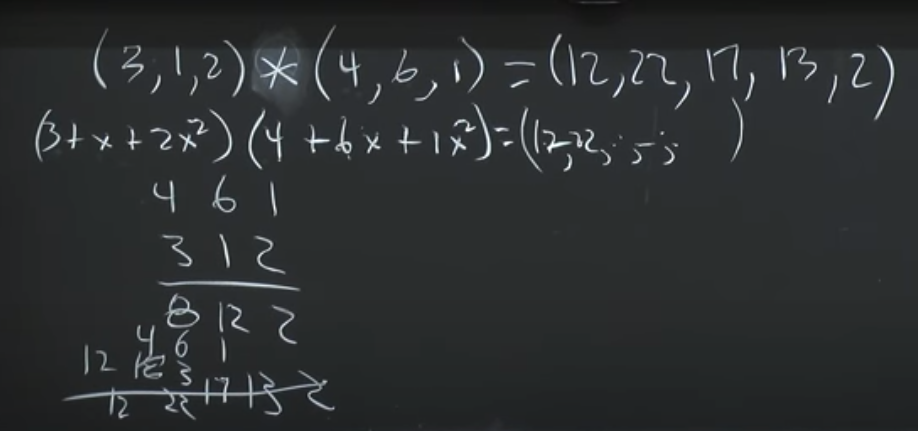 (3,1,2) * (4,6,1) = (12,22,17,13,2)
(3+x+2x²)(4+6x+1x²)=(12,22,;,-,; )
4 6 1
3 1 2
8 12 2
4 6 1
12 18 3
12 22 17 13 2